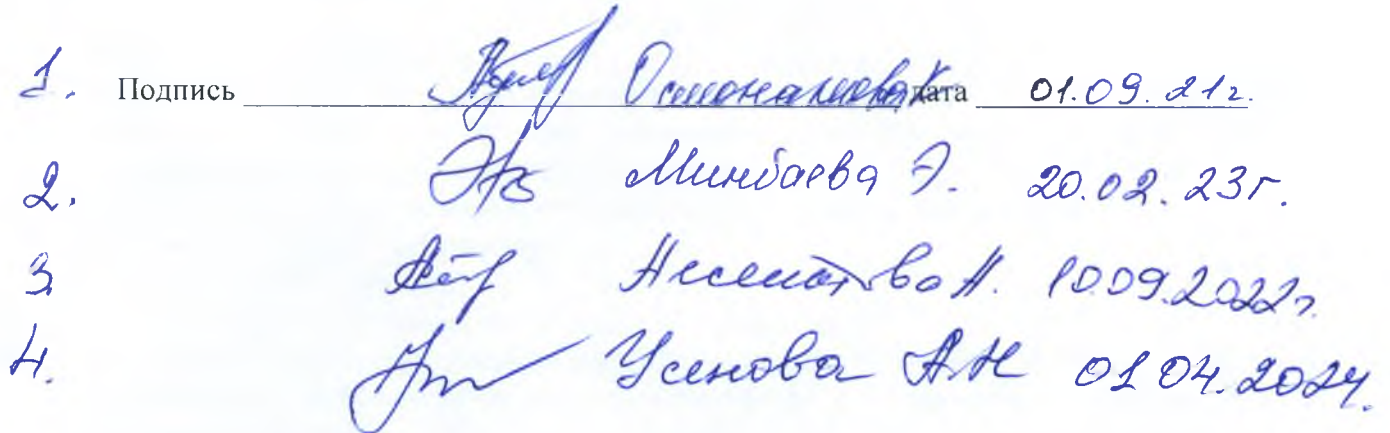 1. Подпись Осмонахунова К дата 01.09.21г.
2. Минбаева Э. 20.02.23г.
3. А. 10.09.2022г
4. Усенова А.К 01.04.2024.